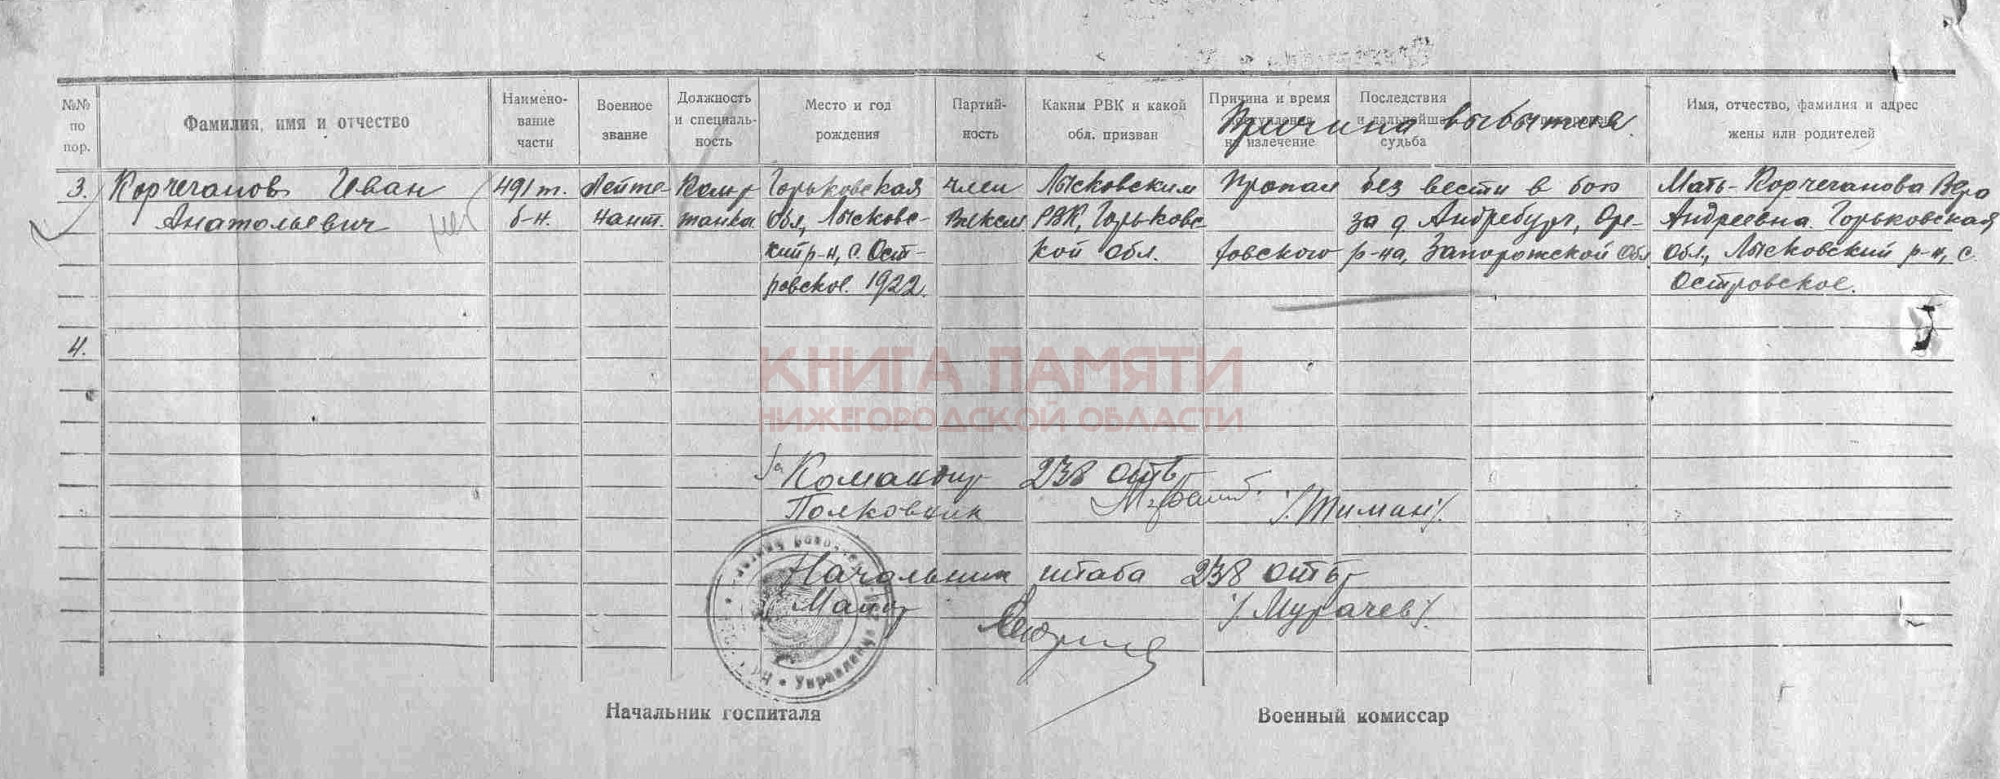 №№ по пор.
Фамилия, имя и отчество
Наимено-
вание
части
Военное
звание
Должность
и специаль-
ность
Место и год
рождения
Партий-
ность
Каким РВК и какой
обл. призван
Причина и время
на излечение
Последствия
судьба
Причина выбытия.
Имя, отчество, фамилия и адрес
жены или родителей
3. Корчеганов Иван
Анатольевич
нет
491 т.
б-н.
Лейте
нант.
Коман
танка
Горьковская
обл., Лысковс-
кий р-н, с. Ост-
ровское. 1922.
член
Влксм
Лысковским
РВК, Горьковс
кой обл.
Пропал без вести в бою
за д. Андребург, Оре-
ховского р-на, Запорожской обл
Мать - Корчеганова Вера
Андреевна. Горьковская
обл., Лысковский р-н, с.
Островское.
4.
КНИГА ПАМЯТИ
НИЖЕГОРОДСКОЙ ОБЛАСТИ
Командир 238 отбр
Полковник /Тиман/.
Начальник штаба 238 отбр
Майор /Мурачев/.
Начальник госпиталя
Военный комиссар